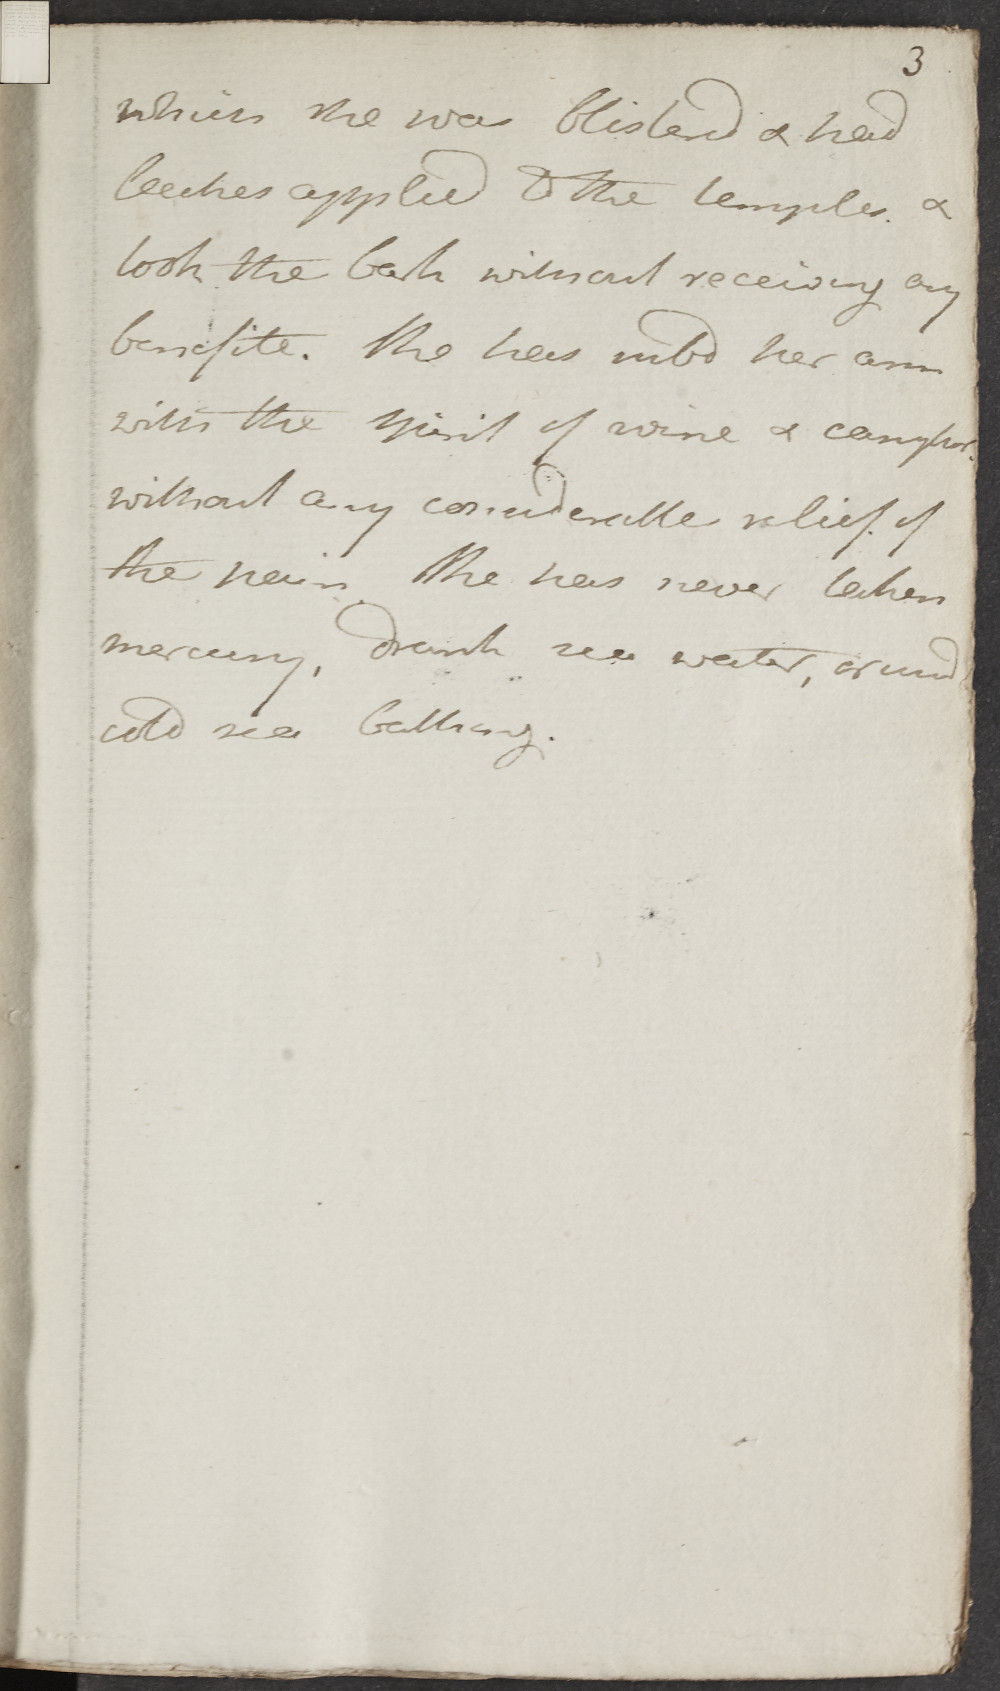 3
which she was blisterd & had
leeches applied to the temples. &
took the bark without receiving any
benefite. She has rubd her arm
with the spirit of wine & camphor.
without any considerable relief. of
the pain. She has never taken
mercury, drank sea water, or used
cold sea bathing.